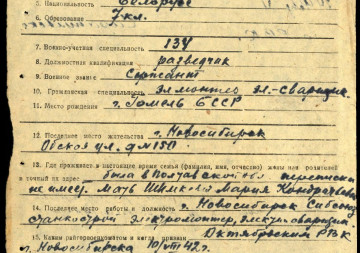 5. Национальность Белорус
6. Образование 7 кл.
7. Военно-учетная специальность 134
8. Должностная квалификация разведчик
9. Военное звание Сержант
10. Гражданская специальность эл.-сварщик
11. Место рождения г. Гомель БССР
12. Последнее место жительства г. Новосибирск
Обская ул. д №150
13. Где проживает в настоящее время семья (фамилия, имя, отчество) жены или родителей
и точный их адрес была в Полтавской обл. переписки
не имеет. Мать Мария Кондратьевна
14. Последнее место работы и должность г. Новосибирск
электромонтер, электросварщик
15. Каким райгорвоенкоматом и когда призван Октябрьским РВК
г. Новосибирска 10/VIII 42 г.